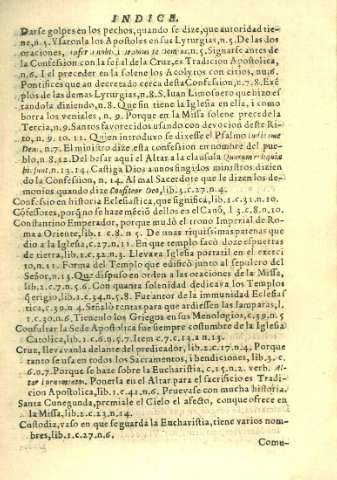 INDICE.
Darse golpes en los pechos, quando se dize, que autoridad tie-
ne, n.5. Vsaronla los Apostoles en sus Lyturgias, n.5. De las dos
oraciones, n.5. Signarse antes de
la Confession con la señal de la Cruz, es Tradicion Apostolica,
n.6. I el preceder en la solene los Acolytos con cirios, nu.6.
Pontifices que an decretado cerca desta Confession, n.7.8. Exē
plos de las demas Lyturgias, n.8. S. Iuan Limosnero que hizo es-
tandola diziendo, n.8. Que fin tiene la Iglesia en ella, i como
borra los veniales, n. 9. Porque en la Missa solene precede la
Tercia, n.9. Santos favorecidos usando con devocion deste Ri-
to, n. 9. 10. 11. Quien introduxo se dixesse el Psalmo Iudica me
Deus, n.7. El ministro dize esta confession en nombre del pue-
blo, n.8.12. Del besar aqui el Altar a la clausula Quorum reliquiæ
hic sunt, n.13.14. Castiga Dios a unos fingidos ministros dizien
do la Confession, n. 14. Al mal Sacerdote que le dizen los de-
monios quando dize Confiteor Deo, lib.2.c.27.n.4.
Confession en historia Eclesiastica, que significa, lib.1.c.31.n.10.
Cōfessores, porq̄ no se haze mēciō dellos en el Canō, l.3.c.8.n.10.
Constantino Emperador, porque mudò el trono Imperial de Ro-
ma a Oriente, lib.1.c.8. n 5. De unas riquissimas patenas que
dio a la Iglesia, c.27.n.11. En que templo sacò doze espuertas
de tierra, lib.1.c.32.n.3. Llevava Iglesia portatil en el exerci-
to, n.11. Forma del Templo que edificò junto al sepulcro del
Señor, n.13. Que dispuso en orden a las oraciones de la Missa,
lib.2.c.7.n.5.6. Con quanta solenidad dedicava los Templos
q̄ erigio, lib.1.c.34.n.5.8. Fue autor de la immunidad Eclesias
tica, c.30.n 4. Señalò rentas para que ardiessen las lamparas, l.
1.c.30.n.6. Tienenlo los Griegos en sus Menologios, c.39.n.5
Consultar la Sede Apostolica fue siempre costumbre de la Iglesia
Catolica, lib.1.c.6.n.5.7. Item c.7.c.13.n.12.
Cruz, llevavanla delante del predicador, lib.2.c.17.n.4. Porque
tanto se usa en todos los Sacramentos, i bendiciones, lib.3. c.
6.n.7. Porque se haze sobre la Eucharistia, c.15.n.2. verb. Al-
tar Ponerla en el Altar para el sacrificio es Tradi-
cion Apostolica, lib.1.c.42.n.6. Pruevase con mucha historia.
Santa Cunegunda, premiale el Cielo el afecto, con que ofrece en
la Missa, lib.2.c.23.n.14.
Custodia, vaso en que se guarda la Eucharistia, tiene varios nom-
bres, lib.1.c.27.n.6.
Come-